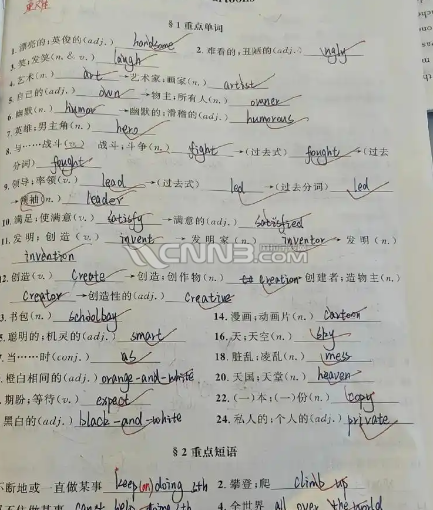 §1 重点单词
1. 漂亮的;英俊的(adj.) handsome 2. 难看的,丑陋的(adj.) ungly
3. 笑;发笑(n. & v.) laugh
4. 艺术(n.) art →艺术家;画家(n.) artist
5. 自己的(adj.) own →物主;所有人(n.) owner
6. 幽默(n.) humor →幽默的;滑稽的(adj.) humorous
7. 英雄;男主角(n.) hero
8. 与……战斗(v.) 战斗;斗争(n.) fight →(过去式) fought →(过去
分词) fought
9. 领导;率领(v.) lead →(过去式) led →(过去分词) led
→领袖(n.) leader
10. 满足;使满意(v.) satisfy →满意的(adj.) satisfied
11. 发明;创造(v.) invent →发明家(n.) inventor →发明(n.)
invention
12. 创造(v.) create →创造;创作物(n.) creation 创建者;造物主(n.)
creator →创造性的(adj.) creative
3. 书包(n.) schoolbag 14. 漫画;动画片(n.) cartoon
聪明的;机灵的(adj.) smart 16. 天;天空(n.) sky
当……时(conj.) as 18. 脏乱;凌乱(n.) mess
橙白相间的(adj.) orange-and-white 20. 天国;天堂(n.) heaven
期盼;等待(v.) expect 22. (一)本;(一)份(n.) copy
黑白的(adj.) black-and-white 24. 私人的;个人的(adj.) private
§2 重点短语
不断地或一直做某事 keep(on)doing sth 2. 攀登;爬 climb up
can't help doing sth 4. 全世界 all over the world
CNNB.com